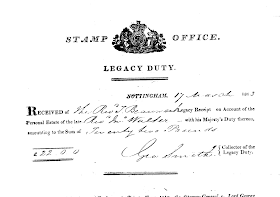 STAMP OFFICE.
LEGACY DUTY.
NOTTINGHAM, 17 March
RECEIVED of The Revd J. Legacy Receipt on Account of the
Personal Estate of the late Revd Jno Walter with his Majesty's Duty thereon,
amounting to the Sum of Twenty two Pounds
£22 0 4 Geo Smith Collector of the
Legacy Duty.